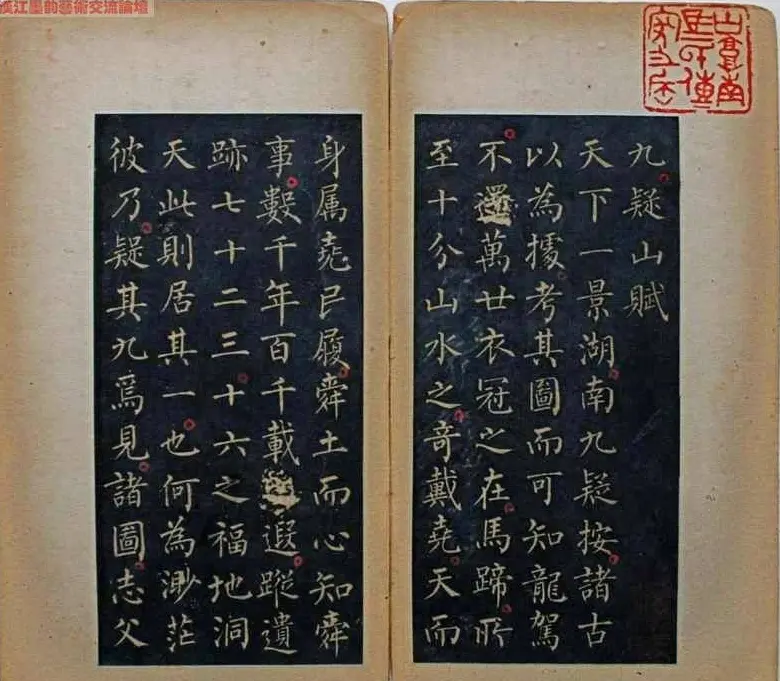 江墨韵藝術交流論壇
九疑山賦
天下一景湖南九疑按諸古
以為據考其圖而可知龍駕
不還萬廿衣冠之在馬蹄所
至十分山水之奇戴堯天而
身属堯巳履舜土而心知舜
事數千年百千載遐蹤遺
跡七十二三十六之福地洞
天此則居其一也何為渺茫
彼乃疑其九焉見諸圖志父